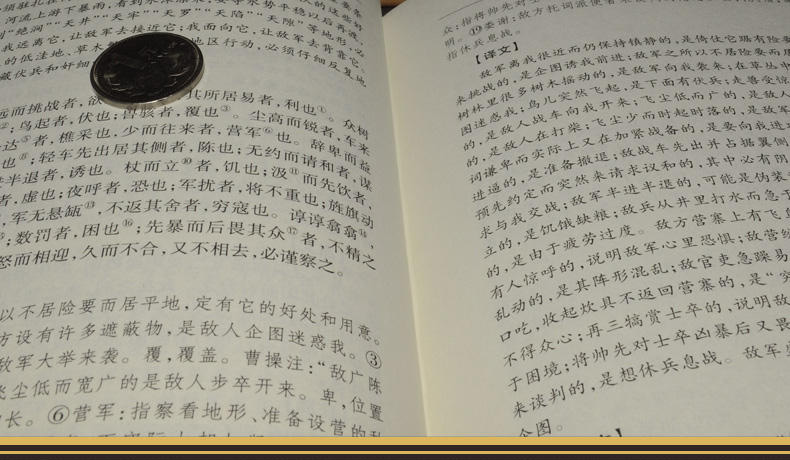 河流上游下暴雨，看到水沫漂来，要等水势平稳以后再渡，
“绝涧”“天井”“天牢”“天罗”“天陷”“天隙”等地形，必
我远离它，让敌军去接近它；我面向它，让敌军去背靠它。
的低法地、草木
地区行动，必须仔细反复地
藏伏兵和奸细
远而挑战者，欲
其所居易者，利也①。众树
②；鸟起者，伏也；兽骇者，覆也③。尘高而锐者，车来
达⑤者，樵采也，少而往来者，营军⑥也。辞卑而益
也⑧；轻车先出居其侧者，陈也；无约而请和者，谋
半进半退者，诱也。杖而立⑩者，饥也；汲⑪而先饮者，
者，虚也；夜呼者，恐也；军扰者，将不重也；旌旗动
，军无悬缻⑬，不返其舍者，穷寇也。谆谆翕翕⑭，
；数罚者，困也⑯；先暴而后畏其众⑰者，不精之
怒而相迎，久而不合，又不相去，必谨察之。
以不居险要而居平地，定有它的好处和用意。
方设有许多遮蔽物，是敌人企图迷惑我。③
敌军大举来袭。覆，覆盖。曹操注：“敌广陈
飞尘低而宽广的是敌人步卒开来。卑，位置
长。⑥营军：指察看地形、准备设营的
众：指将帅先对士
明。⑲委谢：敌方托词派使者来
指休兵息战。
【译文】
敌军离我很近而仍保持镇静的，是倚仗它据有险要
来挑战的，是企图诱我前进；敌军之所以不居险要而居
树林里很多树木摇动的，是敌军向我袭来；在草丛中
图迷惑我；鸟儿突然飞起，是下面有伏兵；走兽受惊
的，是敌人战车向我开来；飞尘低而广的，是敌人
的，是敌人在打柴；飞尘少而时起时落的，是敌军
词谦卑而实际上又在加紧战备的，是要向我进攻
进逼的，是准备撤退；敌战车先出并占据翼侧
预先约定而突然来请求议和的，其中必有阴
求与我交战；敌军半进半退的，可能是伪装
立的，是饥饿缺粮；敌兵从井里打水而急于
的，是由于疲劳过度。敌方营寨上有飞鸟
有人惊呼的，说明敌军心里恐惧；敌营纷
乱动的，是其阵形混乱；敌官吏急躁易
口吃，收起炊具不返回营寨的，是“穷
不得众心；再三犒赏士卒的，说明敌
于困境；将帅先对士卒凶暴后又畏
来谈判的，是想休兵息战。敌军
企图。